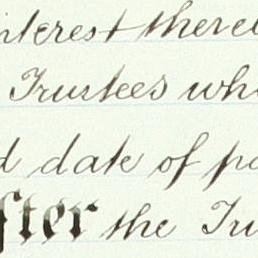 interest there
Trustees wh
d date of pa
fter the Tru